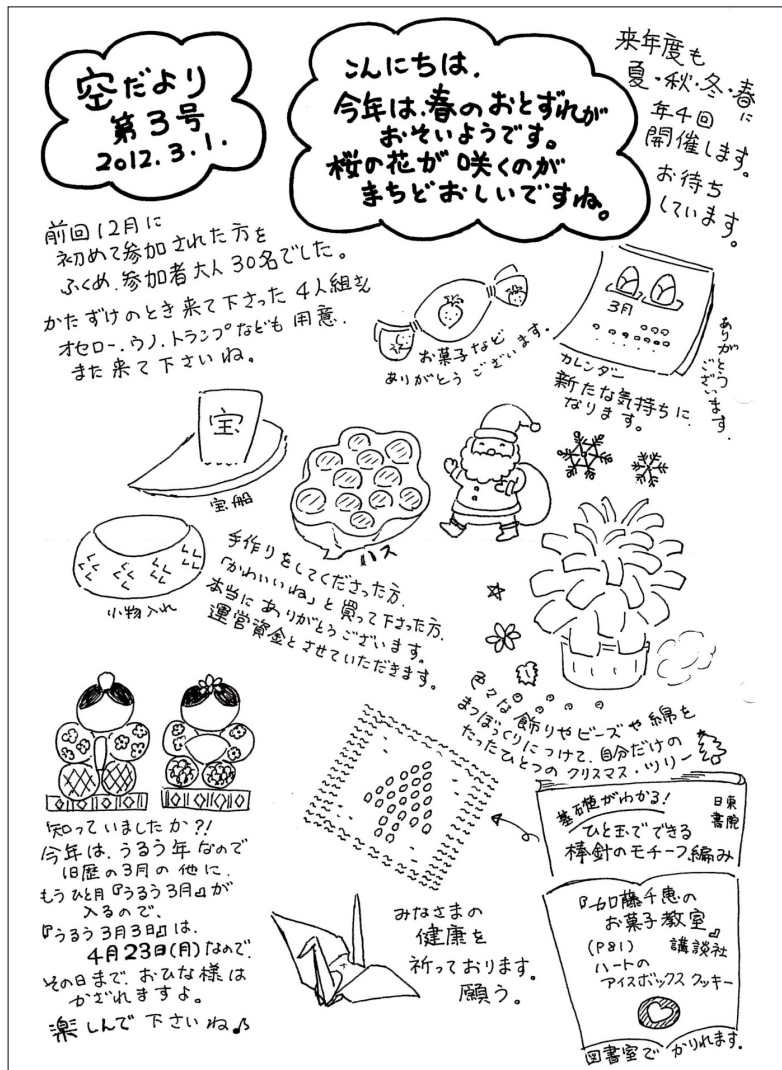 空だより
第3号
2012.3.1.
こんにちは、
今年は、春のおとずれが
おそいようです。
桜の花が咲くのが
まちどおしいですね。
来年度も
夏・秋・冬・春に
年4回
開催します。
お待ち
しています。
前回12月に
初めて参加された方を
ふくめ、参加者大人30名でした。
かたずけのとき来て下さった4人組さん
オセロー、ウノ、トランプなども用意、
また来て下さいね。
お菓子など
ありがとうございます。
3月
カレンダー
新たな気持ちに
なります。
ありがとう
ございます。
宝
宝船
ハス
小物入れ
手作りをしてくださった方、
「かわいいね」と買って下さった方、
本当にありがとうございます。
運営資金とさせていただきます。
色々な飾りやビーズや綿を
まつぼっくりにつけて、自分だけの
たったひとつのクリスマス・ツリー
知っていましたか?!
今年は、うるう年なので
旧歴の3月の他に、
もうひと月『うるう3月』が
入るので、
『うるう3月3日』は、
4月23日(月)なので、
その日まで、おひな様は
かざれますよ。
楽しんで下さいね♪
みなさまの
健康を
祈っております。
願う。
基礎がわかる!
日東書院
ひと玉でできる
棒針のモチーフ編み
『加藤千恵の
お菓子教室』
(P81) 講談社
ハートの
アイスボックスクッキー
図書室でかりれます。